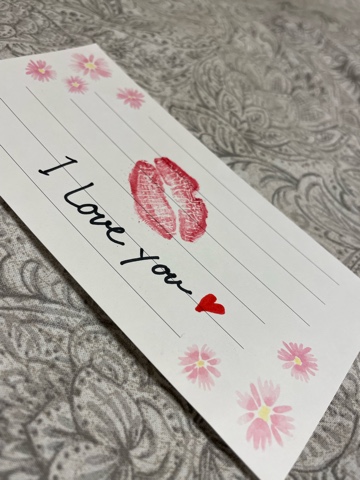 I love you ❤